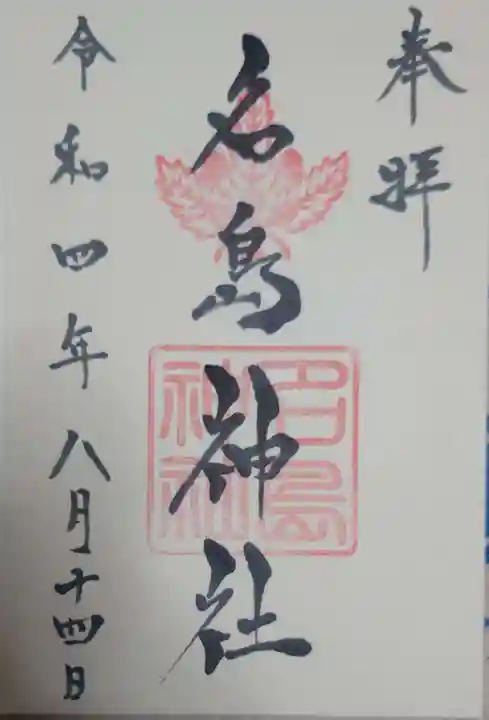 奉拝
名島神社
名島
神社
令和四年八月十四日